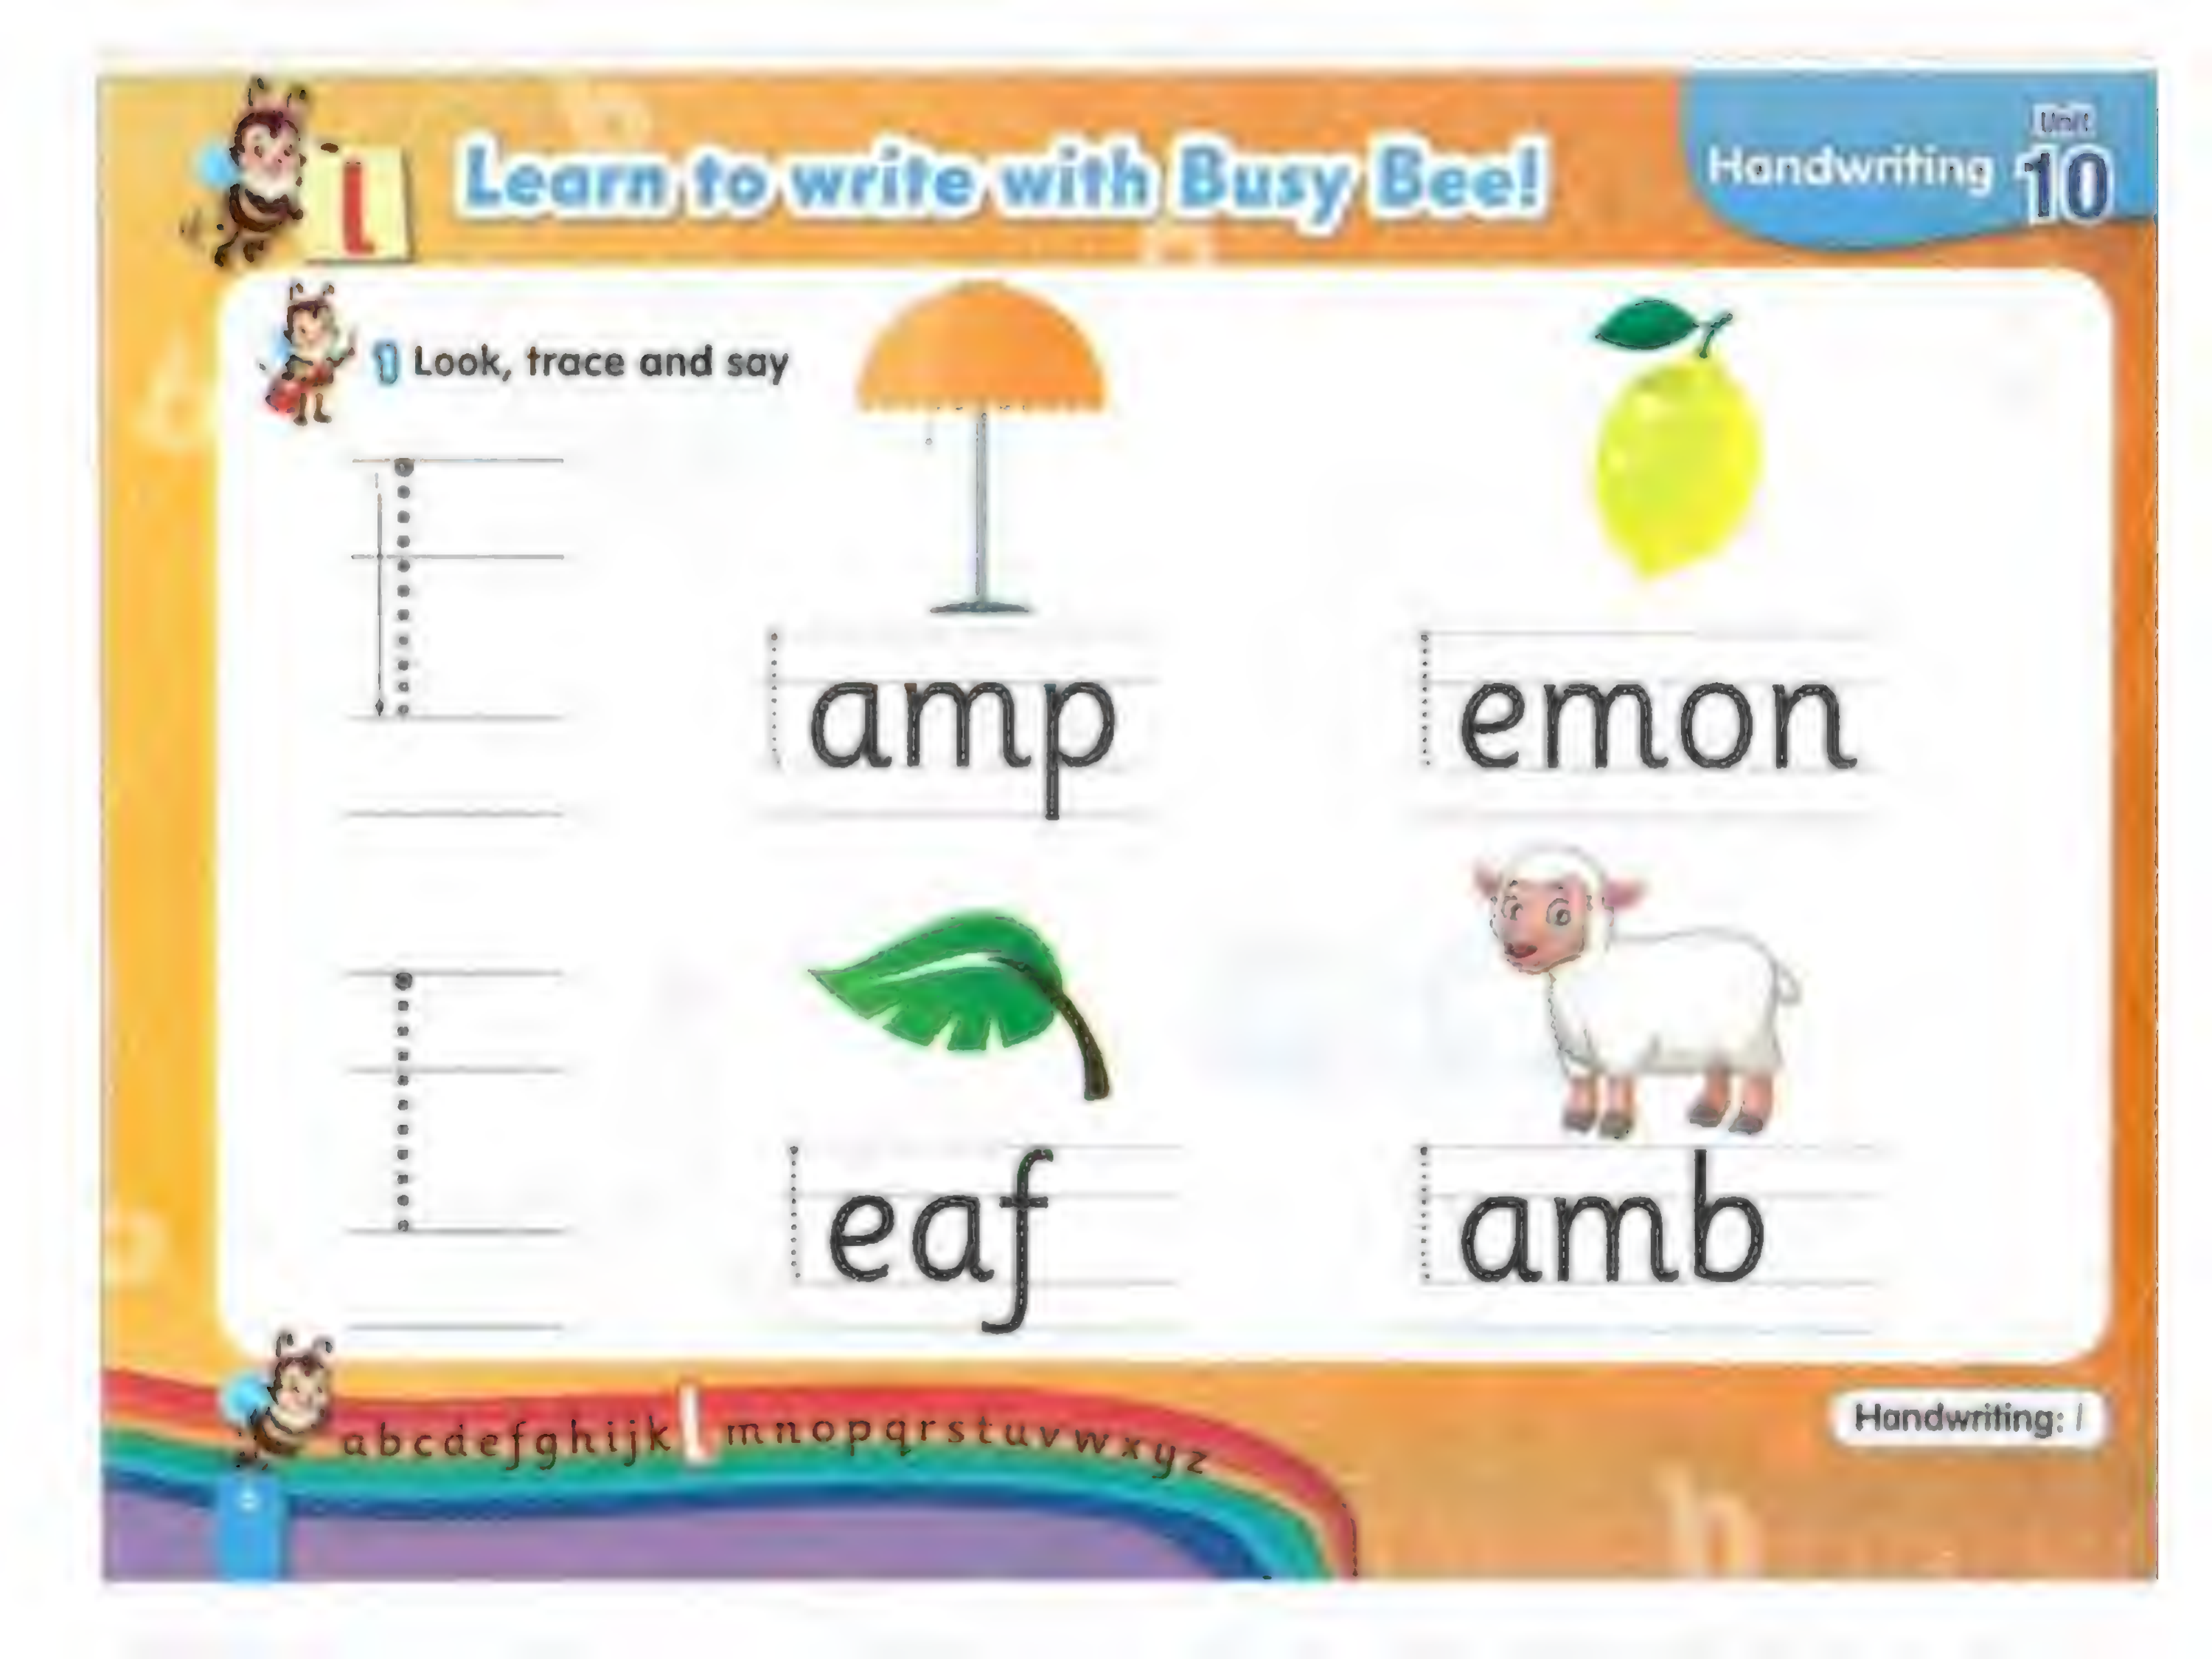 l
Learn to write with Busy Bee!
Handwriting
Unit
10
1 Look, trace and say
l
lamp
lemon
l
leaf
lamb
abcdefghijk l mnopqrstuvwxyz
Handwriting: l